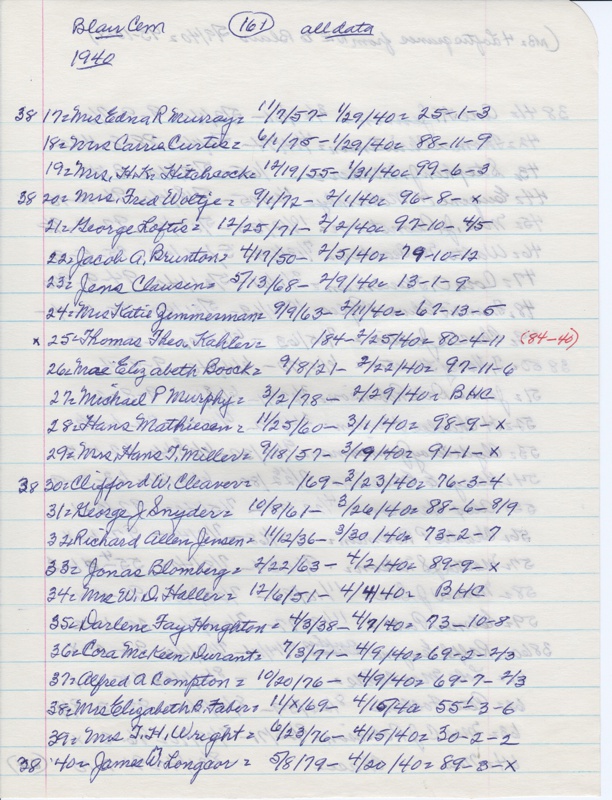 Blair Cem (161) all data
1940
38 17= Mrs Edna R Murray= 11/7/57 - 1/29/40= 25-1-3
18= Mrs Carria Curtis= 6/1/75 - 1/29/40= 88-11-9
19= Mrs. H.K. Hitchcock= 12/19/55 - 1/31/40= 99-6-3
38 20= Mrs. Fred Woltje= 9/1/72 - 2/1/40= 96-8-x
21= George Loftis= 12/25/71 - 2/2/40= 97-10-4/5
22= Jacob A. Brunton= 4/17/50 - 2/5/40= 79-10-12
23= Jens Clausin= 5/13/68 - 2/9/40= 13-1-9
24= Mrs Katie Zimmerman= 9/9/63 - 2/11/40= 67-13-5
x 25= Thomas Theo. Kahler= /84 - 2/25/40= 80-4-11 (84-40)
26= Mae Elizabeth Boock= 9/8/21 - 2/22/40= 97-11-6
27= Michael P Murphy= 3/2/78 - 2/29/40= BHC
28= Hans Mathiesen= 11/25/60 - 3/1/40= 98-9-x
29= Mrs, Hans T. Miller= 9/18/57 - 3/19/40= 91-1-x
38 30= Clifford W. Cleaver= /69 - 3/23/40= 76-3-4
31= George J. Snyder= 10/8/61 - 3/26/40= 88-6-8/9
32= Richard Allen Jensen= 11/12/36 - 3/30/40= 73-2-7
33= Jonas Blomberg= 2/22/63 - 4/2/40= 89-9-x
34= Mrs W. D. Haller= 12/6/51 - 4/4/40= BHC
35= Darlene Fay Houghton= 4/3/38 - 4/7/40= 73-10-8
36= Cora McKeen Durant= 7/3/71 - 4/9/40= 69-2-2/3
37= Alfred A Compton= 10/20/76 - 4/9/40= 69-7-2/3
38= Mrs Elizabeth B. Faber= 11/x/69 - 4/15/40= 55-3-6
39= Mrs T. H. Wright= 6/23/76 - 4/15/40= 30-2-2
38 40= James W. Longaor= 5/8/79 - 4/20/40= 89-3-x